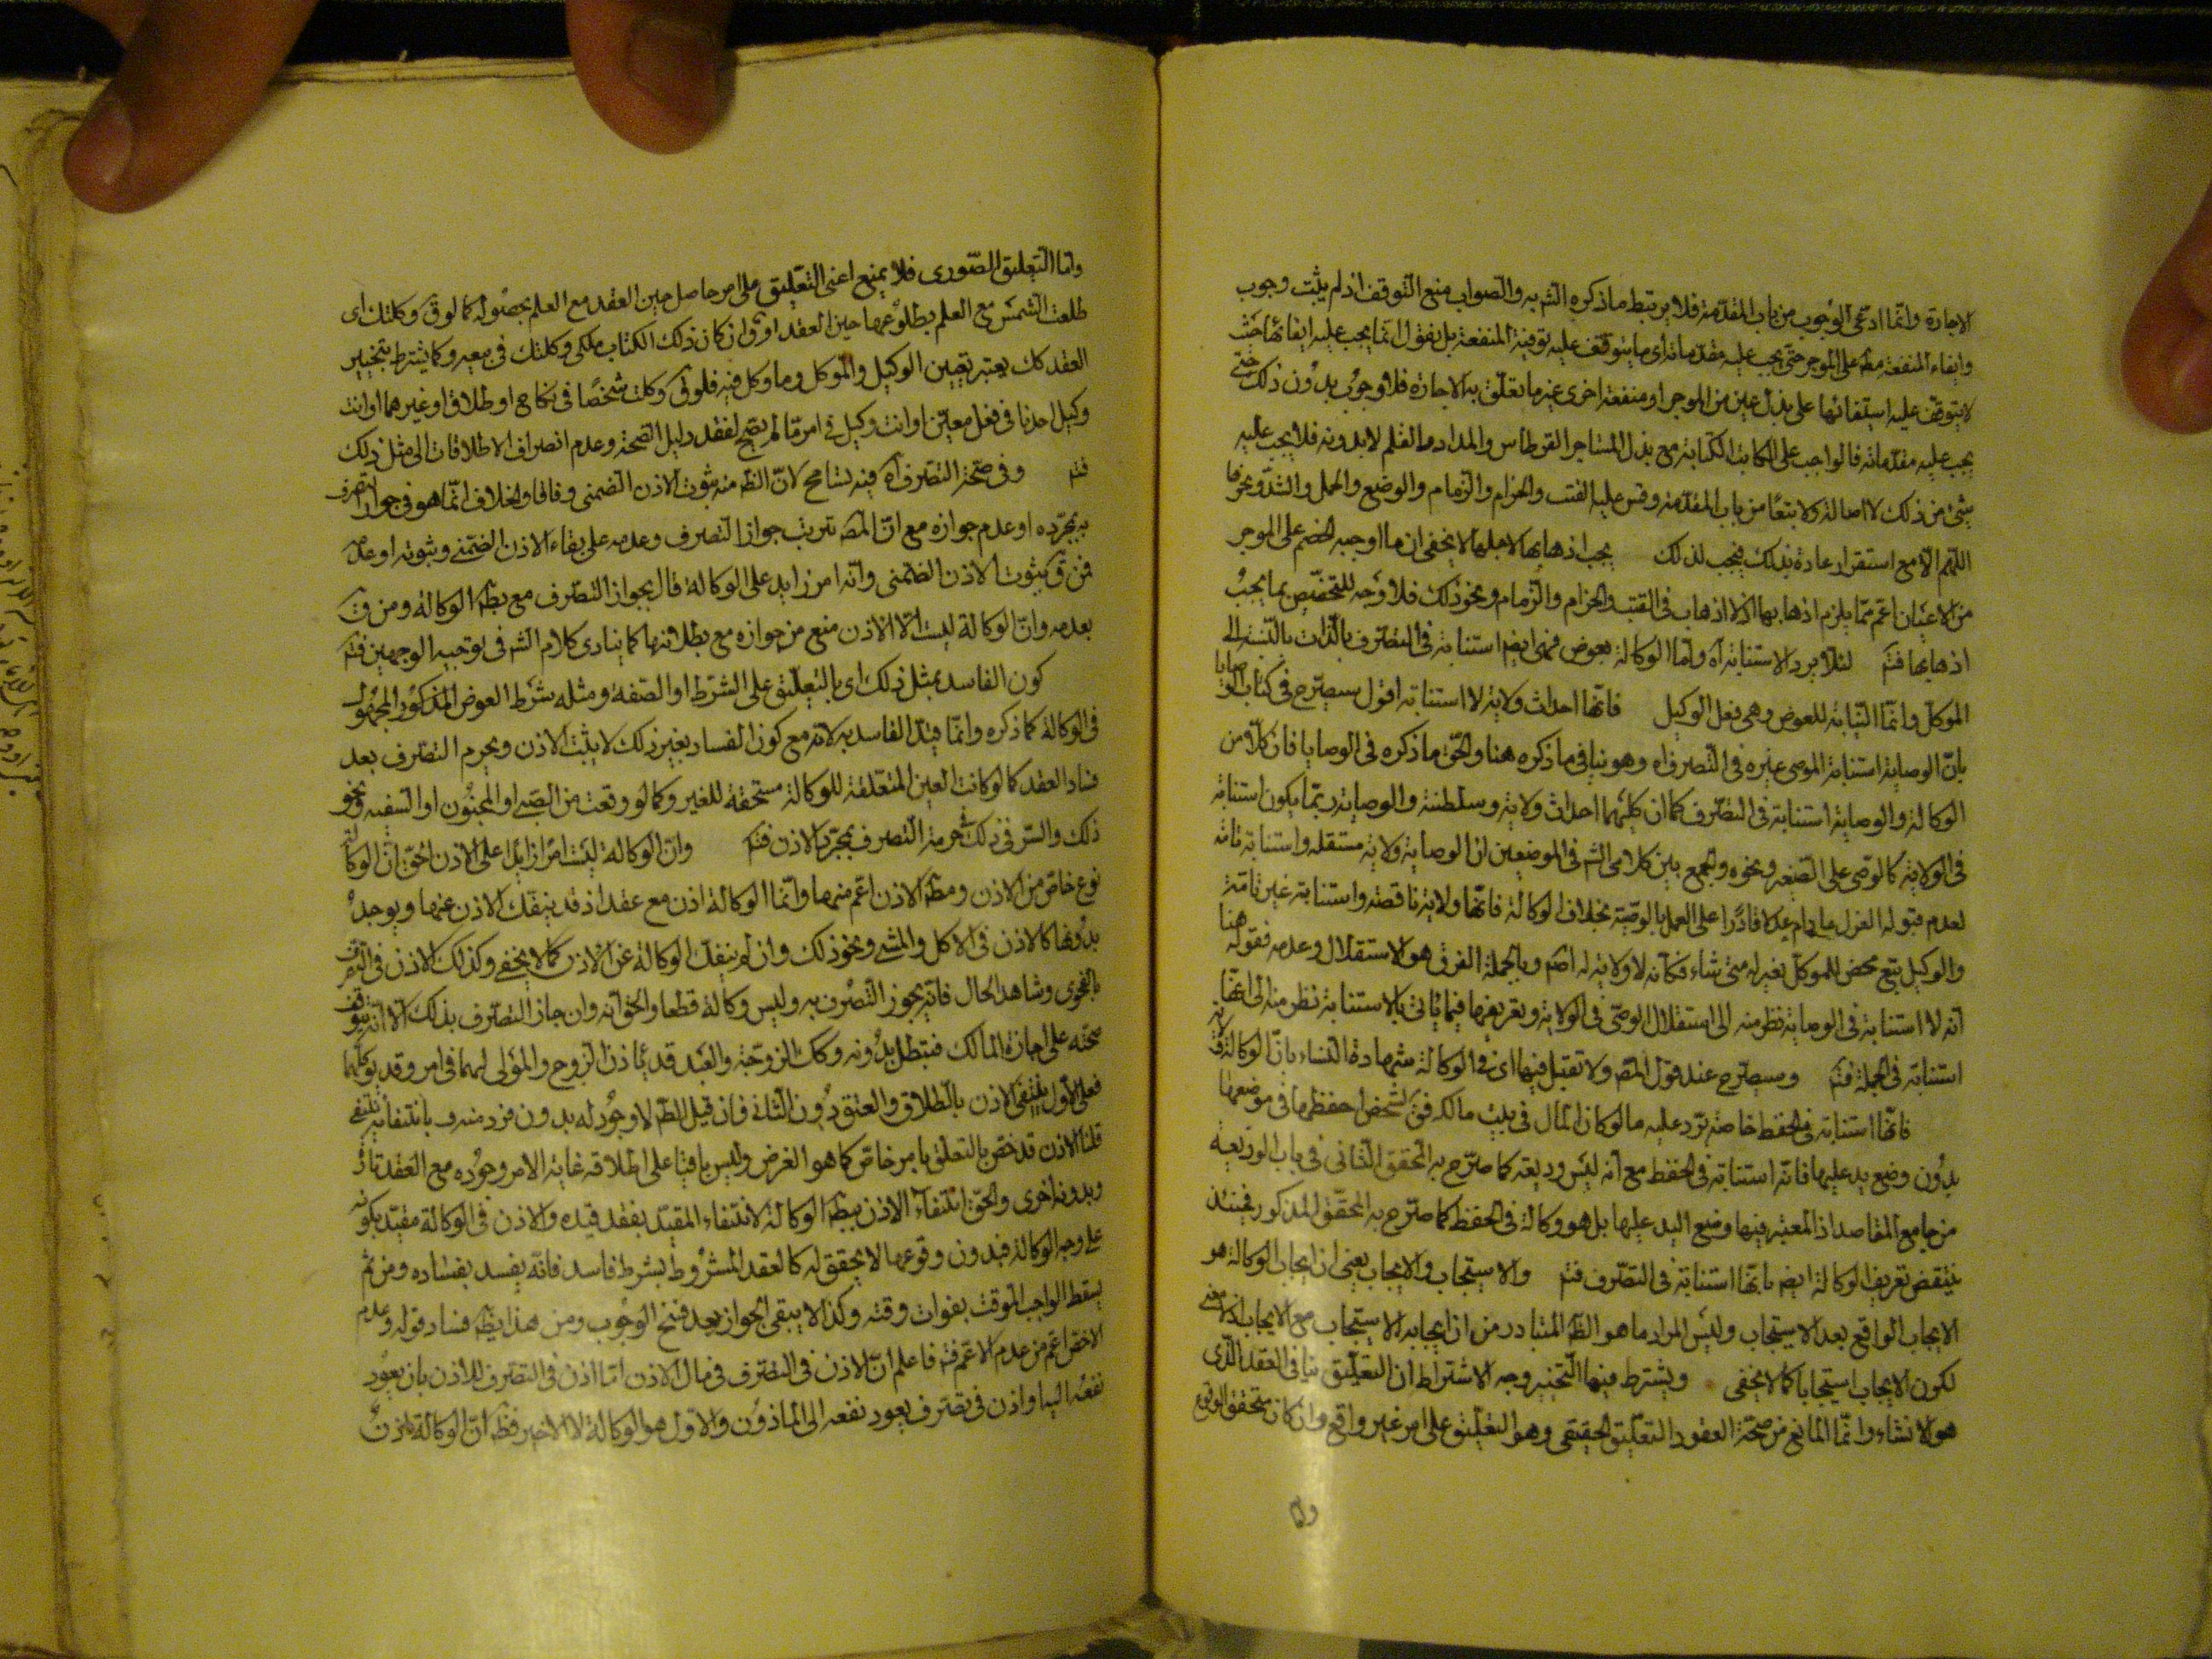 الاجارة وانّما ادعى الوجوب من باب المقدّمة فلا يرتبط ما ذكره الش به والصواب منع التوقف اذ لم يثبت وجوب
وايفاء المنفعة مط على الموجر حتى يجب عليه مقدّماته اى ما يتوقف عليه توفية المنفعة بل نقول انما يجب عليه ايفائها حيث
لا يتوقف عليه استيفائها على بذل عين من الموجر او منفعة اخرى غير ما تعلّق به الاجارة فلا وجوب بدون ذلك حتى
يجب عليه مقدّماته فالواجب على الكاتب الكتابة مع بذل المستاجر القرطاس والمداد والقلم لا بدونه فلا يجب عليه
شىء من ذلك لا اصالة ولا تبعًا من باب المقدّمة وقس عليه القتب والحزام والزمام والوضيع والحمل والشدّ ونحوها
اللهم الّا مع استقرار عادة بذلك فيجب لذلك يجب اذهابها لاجلها لا يخفى ان ما اوجبه الخصم على الموجر
من الاعيان اعمّ ممّا يلزم اذهابها اذ لا اذهاب فى القتب والحزام والزمام ونحو ذلك فلا وجه للتخصيص بما يجب
اذهابها فتم لئلّا يرد الاستنابة آه وامّا الوكالة بعوض فهى ايضا استنابة فى التصرف بالذات بالنسبة الى
الموكل وانما النيابة للعوض وهى فعل الوكيل فانّها احداث ولاية لا استنابة اقول سيصرّح فى كتاب الوصايا
بانّ الوصاية استنابة الموصى غيره فى التصرف اه وهو ينافى ما ذكره هنا والحقّ ما ذكره فى الوصايا فان كلّا من
الوكالة والوصاية استنابة فى التصرف كما ان كليهما احداث ولاية وسلطنة والوصاية ربّما يكون استنابة
فى الولاية كالوصى على الصغير ونحوه والجمع بين كلامى الش فى الموضعين ان الوصاية ولاية مستقله واستنابة تامة
لعدم قبوله العزل ما دام عدلا قادرًا على العمل بالوصية بخلاف الوكالة فانّها ولاية ناقصة واستنابة غير تامّة
والوكيل تبع محض للموكل يغيره متى شاء فكأنه لا ولاية له اصم وبالجملة الفرق هو الاستقلال وعدمه فقوله هنا
انه لا استنابة فى الوصاية نظر منه الى استقلال الوصى فى الولاية وتعريفها فيما ياتى بالاستنابة نظر منه الى انّها
استنابة فى الجملة فتم وسيصرح عند قول المص ولا تقبل فيها اى فى الوكالة شهادة النساء بانّ الوكالة ولاية
فانّها استنابة فى الحفظ خاصّة يرد عليه ما لو كان المال فى بيت مالكه فق لشخص احفظها فى موضعها
بدون وضع يد عليها فانّه استنابة فى الحفظ مع انه ليس وديعة كما صرّح به المحقق الثانى فى باب الوديعة
من جامع المقاصد اذ المعتبر فيها وضع اليد عليها بل هو وكالة فى الحفظ كما صرّح به المحقّق المذكور فحينئذ
ينتقض تعريف الوكالة ايضا بانها استنابة فى التصرف فتم والاستيجاب والايجاب يعنى ان ايجاب الوكالة هو
الايجاب الواقع بعد الاستيجاب وليس المراد ما هو الظ المتبادر من ان ايجابه الاستيجاب مع الايجاب اذ لا معنى
لكون الايجاب استيجابا كما لا يخفى ويشترط فيها التنجيز وجه الاشتراط ان التعليق ينافى العقد الذى
هو الانشاء وانّما المانع من صحّة العقود التعليق الحقيقى وهو التعليق على امر غير واقع وان كان متحقق الوقوع
وامّا
وامّا التعليق الصّورى فلا يمنع اعنى التعليق على امر حاصل حين العقد مع العلم بحصوله كما لو ق وكلتك ان
طلعت الشمس مع العلم بطلوعها حين العقد او ق ان كان ذلك الكتاب ملكى وكلتك فى بيعه وكما يشترط تنجيز
العقد كك يعتبر تعيين الوكيل والموكل وما وكل فيه فلو ق وكلت شخصًا فى نكاح او طلاق او غيرهما او انت
وكيل احدنا فى فعل معيّن او انت وكيل فى امر مّا لم يصح لفقد دليل الصحّة وعدم انصراف الاطلاقات الى مثل ذلك
فتم وفى صحّة التصرف آه فيه تسامح لانّ الظ منه ثبوت الاذن الضمنى وفاقا والخلاف انّما هو فى جواز التصرف
به بمجرّده او عدم جوازه مع انّ المص تريب جواز التصرف وعدمه على بقاء الاذن الضمنى وثبوته او عدمه
فمن ق بثبوت الاذن الضمنى وانّه امر زايد على الوكالة قال بجواز التصرف مع بط الوكالة ومن ق
بعدمه وانّ الوكالة ليست الّا الاذن منع من جوازه مع بطلانها كما ينادى كلام الش فى توجيه الوجهين فتم
كون الفاسد بمثل ذلك اى بالتعليق على الشرط او الصّفة ومثله شرط العوض المذكور المجهول
فى الوكالة كما ذكره وانّما قيّد الفاسد به لانّه مع كون الفساد بغير ذلك لا يثبت الاذن ويحرم التصرف بعد
فساد العقد كما لو كانت العين المتعلقة للوكالة مستحقة للغير وكما لو وقعت من الصّبى او المجنون او السّفيه ونحو
ذلك والسّر فى ذلك حرمة التصرف بمجرّد الاذن فتم وانّ الوكالة ليست امرًا زايدًا على الاذن الحقّ انّ الوكالة
نوع خاصّ من الاذن ومط الاذن اعم منها وانّما الوكالة اذن مع عقد اذ قد ينفك الاذن عنها ويوجد
بدونها كالاذن فى الاكل والمشى ونحو ذلك وان لم ينفك الوكالة عن الاذن كما لا يخفى وكذلك الاذن فى التصرف
بالفحوى وشاهد الحال فانّه يجوز التصرف به وليس وكالة قطعا والحق انّه وان جاز التصرف بذلك الّا انّه يتوقف
صحّته على اجازة المالك فتبطل بدونه وكك الزوجة والعبد قد ياذن الزوج والمولى لهما فى امر وقد يوكلهما
فعلى الاول ينتفى الاذن بالطلاق والعتق دون الثانى فان قيل الظ لا وجود له بدون فرد منه ف بانتفائه ينتفى
قلنا الاذن قد خصّ بالتعلق بامر خاصّ كما هو الغرض وليس باقيا على اطلاقه غاية الامر وجوده مع العقد تارة
وبدونه اخرى والحقّ انتفاء الاذن ببط الوكالة لانتفاء المقيد بفقد قيده والاذن فى الوكالة مقيّد بكونه
على وجه الوكالة فبدون وقوعها لا يتحقق له كالعقد المشروط بشرط فاسد فانّه يفسد بفساده ومن ثم
يسقط الواجب الموقت بفوات وقته وكذا لا يبقى الجواز بعد فسخ الوجوب ومن هذا يظ فساد قوله وعدم
الاخص اعم من عدم الاعم فتم فاعلم انّ الاذن فى التصرف فى مال الاذن امّا اذن فى التصرف للاذن بان يعود
نفعه اليه او اذن فى تصرف يعود نفعه الى الماذون والاول هو الوكالة لا الاخير فظ انّ الوكالة اذن